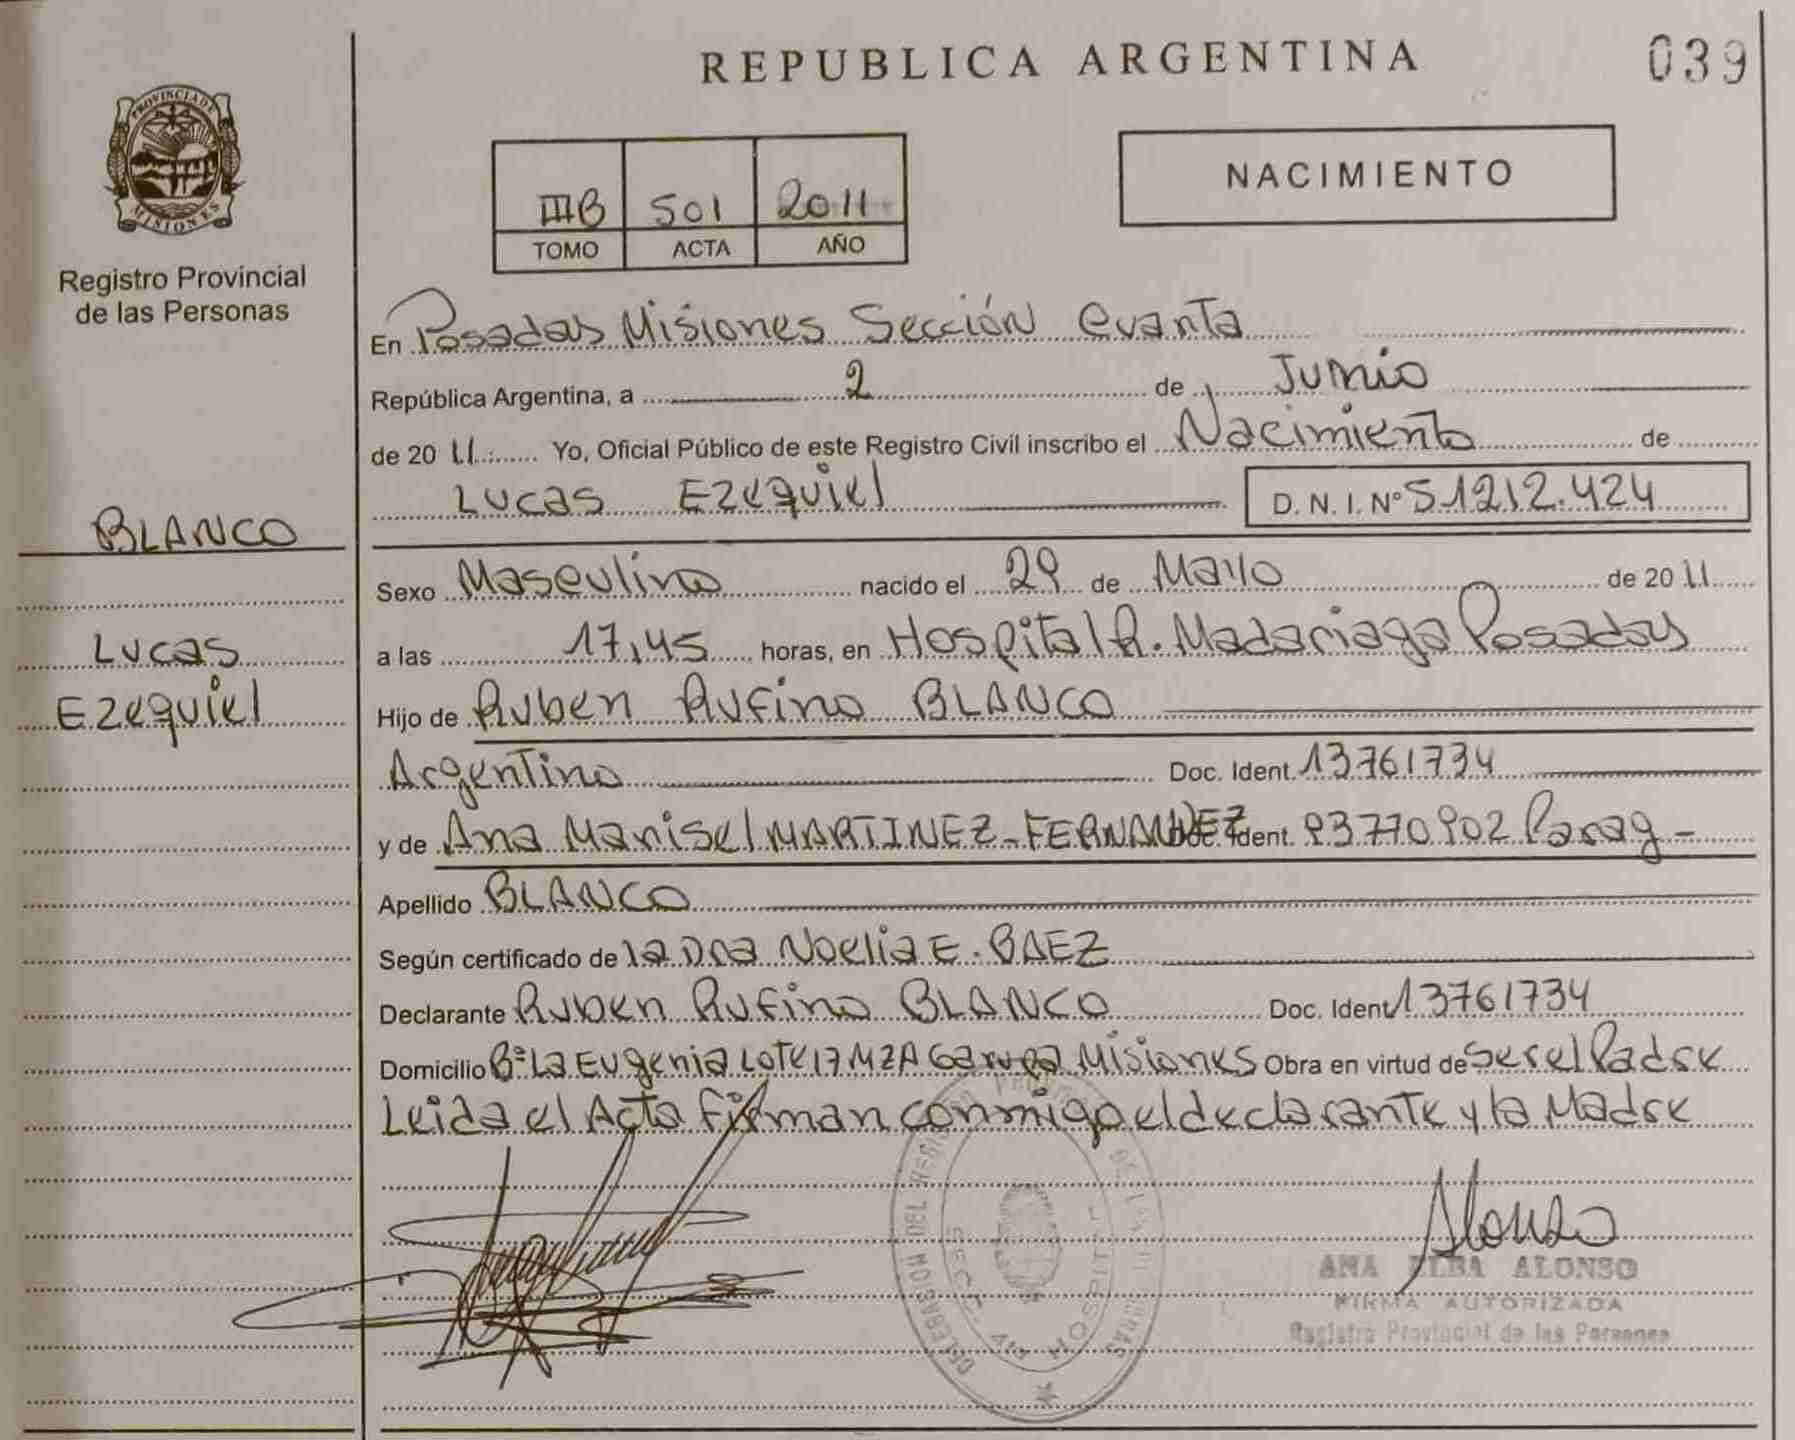 REPUBLICA ARGENTINA
039
PROVINCIA DE
MISIONES
Registro Provincial
de las Personas
IIIB 501 2011
TOMO ACTA AÑO
NACIMIENTO
En Posadas Misiones Sección Cuarta
República Argentina, a 2 de Junio
de 2011 Yo, Oficial Público de este Registro Civil inscribo el Nacimiento de
Lucas Ezequiel D. N. I. Nº 51212.424
BLANCO
Lucas
Ezequiel
Sexo Masculino nacido el 29 de Mayo de 2011
a las 17,45 horas, en Hospital R. Madariaga Posadas
Hijo de Ruben Rufino BLANCO
Argentino Doc. Ident. 13761734
y de Ana Marisel MARTINEZ-FERNANDEZ Doc. Ident. 93770902 Parag-
Apellido BLANCO
Según certificado de la Dra Noelia E. BAEZ
Declarante Ruben Rufino BLANCO Doc. Ident 13761734
Domicilio Bº La Eugenia Lote 17 MZA Garupa Misiones Obra en virtud de ser el Padre
Leida el Acta Firman conmigo el declarante y la Madre
DEL
SECC. 4ta HOSPITAL
Alonso
ANA ELBA ALONSO
FIRMA AUTORIZADA
Registro Provincial de las Personas